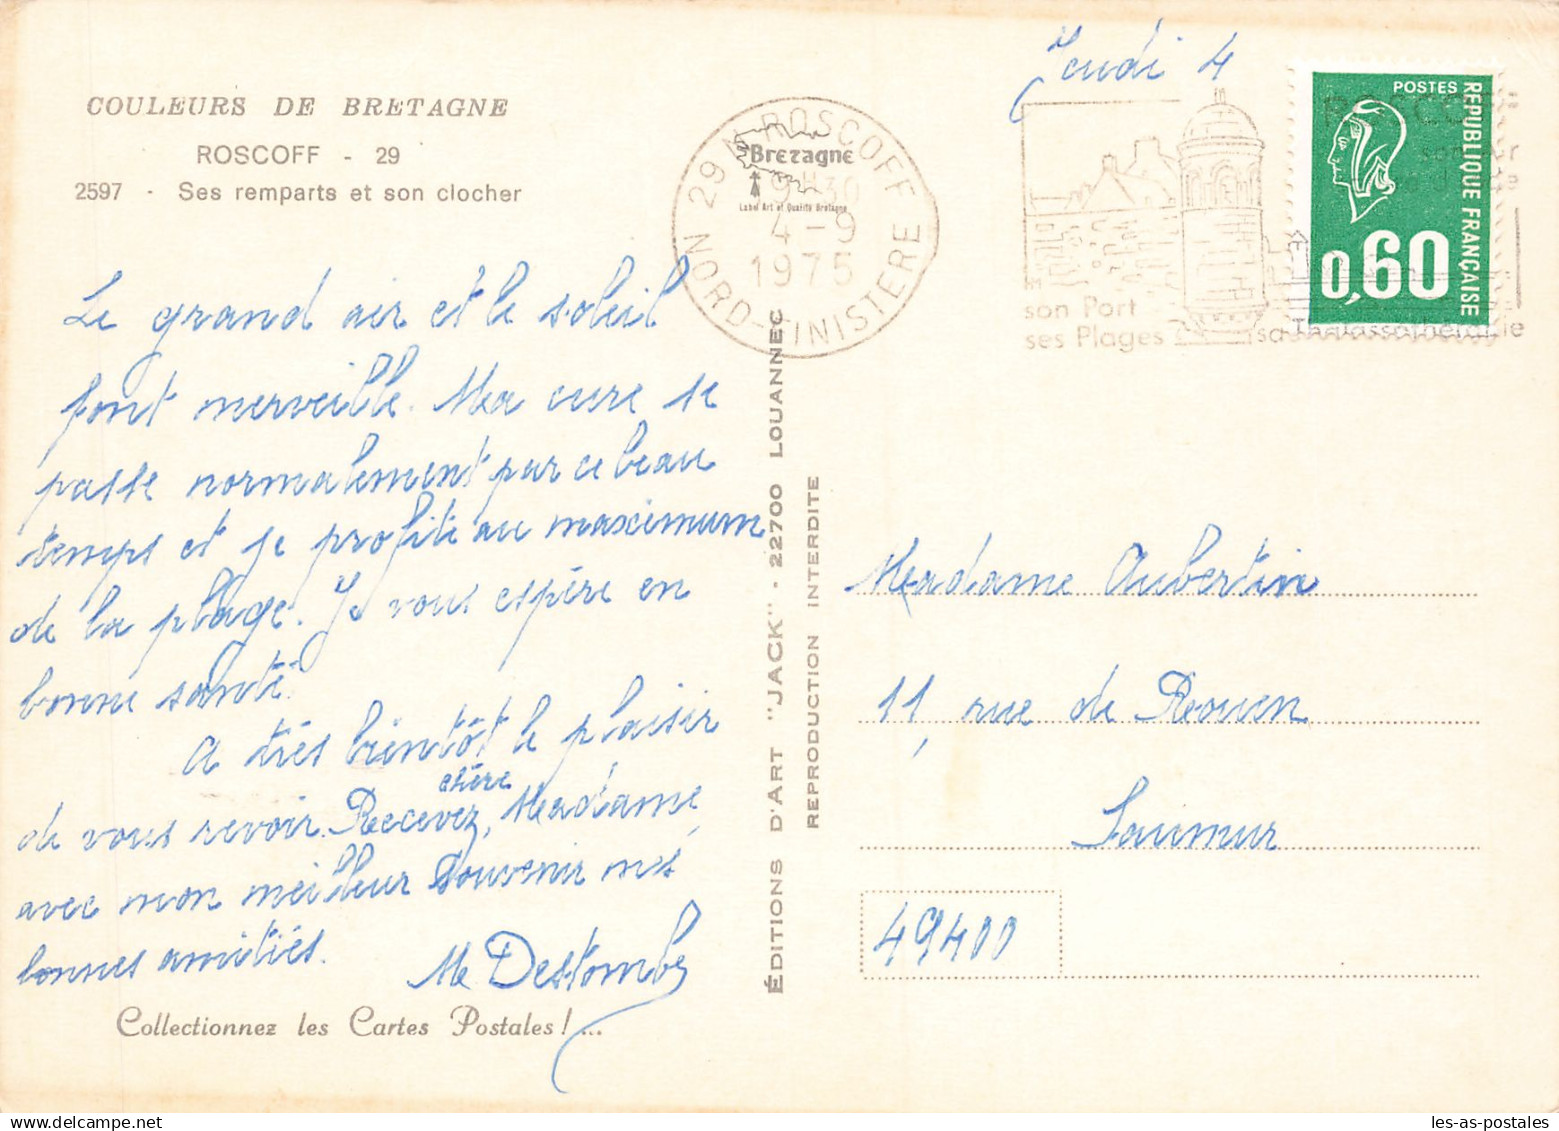 Jeudi 4
COULEURS DE BRETAGNE
ROSCOFF - 29
2597 - Ses remparts et son clocher
Le grand air et le soleil
font merveille. Ma cure se
passe normalement par ce beau
temps et je profite au maximum
de la plage. Je vous espère en
bonne santé.
A très bientôt le plaisir
chère
de vous revoir. Recevez, Madame,
avec mon meilleur souvenir mes
bonnes amitiés.
Me Destombes
Collectionnez les Cartes Postales!...
ÉDITIONS D'ART "JACK" - 22700 LOUANNEC
REPRODUCTION INTERDITE
29 N ROSCOFF
Bretagne
9H30
Label Art et Qualité Bretagne
4-9
1975
NORD-FINISTERE
ROSCOFF
son Port
ses Plages
sa Thalassothérapie
POSTES
REPUBLIQUE FRANÇAISE
0,60
Madame Aubertin
11, rue de Rouen
Saumur
49400
les-as-postales